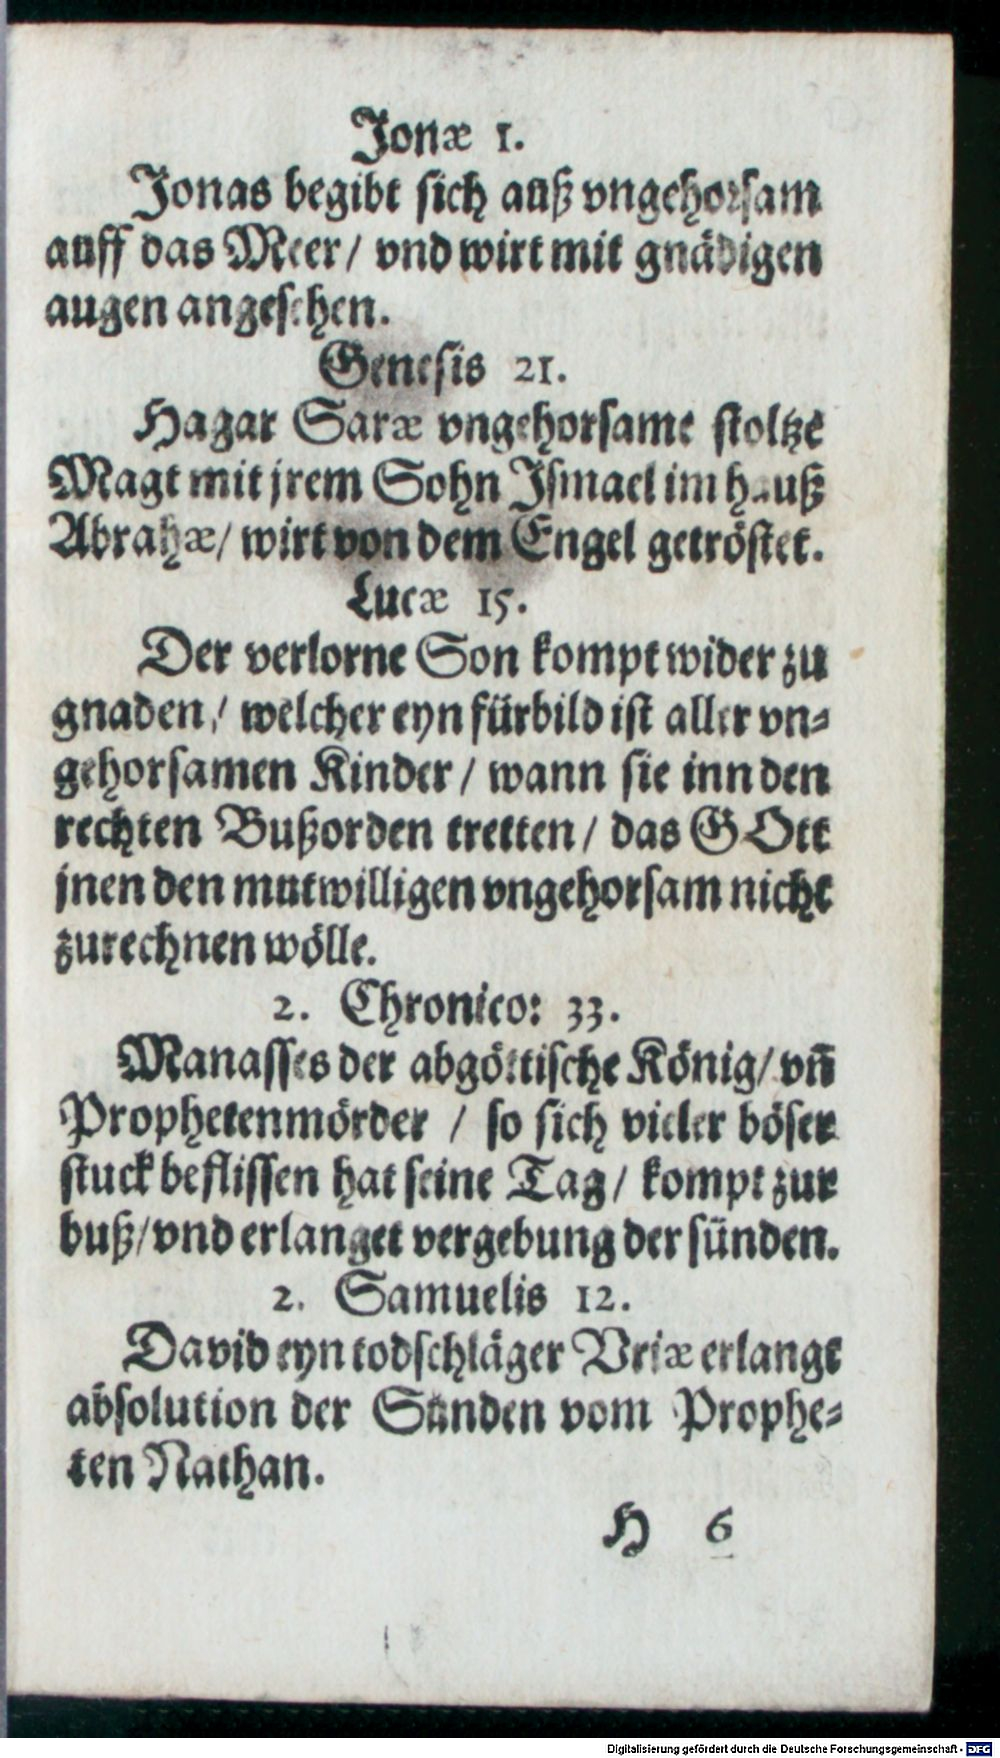 Jonæ 1.
Jonas begibt sich auß vngehorsam
auff das Meer / vnd wirt mit gnädigen
augen angesehen.
Genesis 21.
Hagar Saræ vngehorsame stoltze
Magt mit jrem Sohn Ismael im hauß
Abrahæ / wirt von dem Engel getröstet.
Lucæ 15.
Der verlorne Son kompt wider zu
gnaden / welcher eyn fürbild ist aller vn-
gehorsamen Kinder / wann sie inn den
rechten Bußorden tretten / das GOtt
jnen den mutwilligen vngehorsam nicht
zurechnen wölle.
2. Chronico: 33.
Manasses der abgöttische König / vñ
Prophetenmörder / so sich vieler böser
stuck beflissen hat seine Tag / kompt zur
buß / vnd erlanget vergebung der sünden.
2. Samuelis 12.
David eyn todschläger Vriæ erlangt
absolution der Sünden vom Prophe-
ten Nathan.
H 6
Digitalisierung gefördert durch die Deutsche Forschungsgemeinschaft - DFG